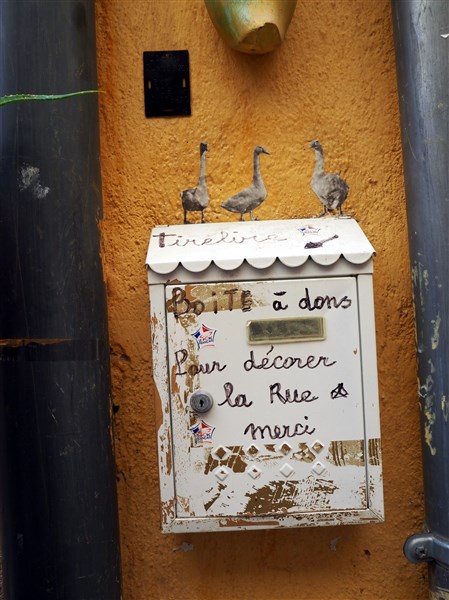 tirelire
BoiTE à dons
Pour décorer
la Rue
merci